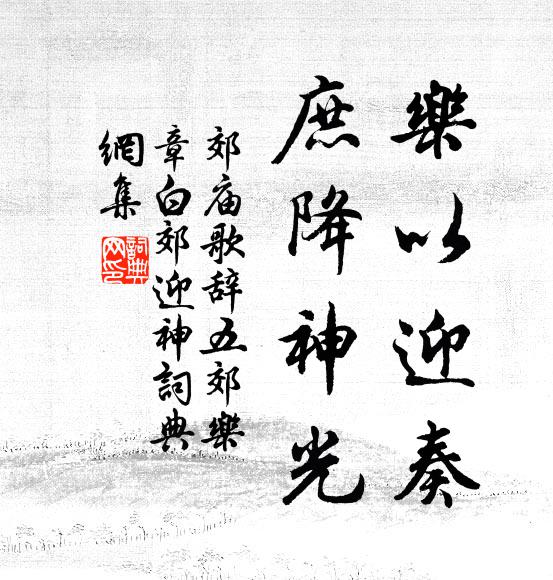 樂以迎奏
庶降神光
郊庙歌辞五郊樂
章白郊迎神詞典
網集
詞典
网印